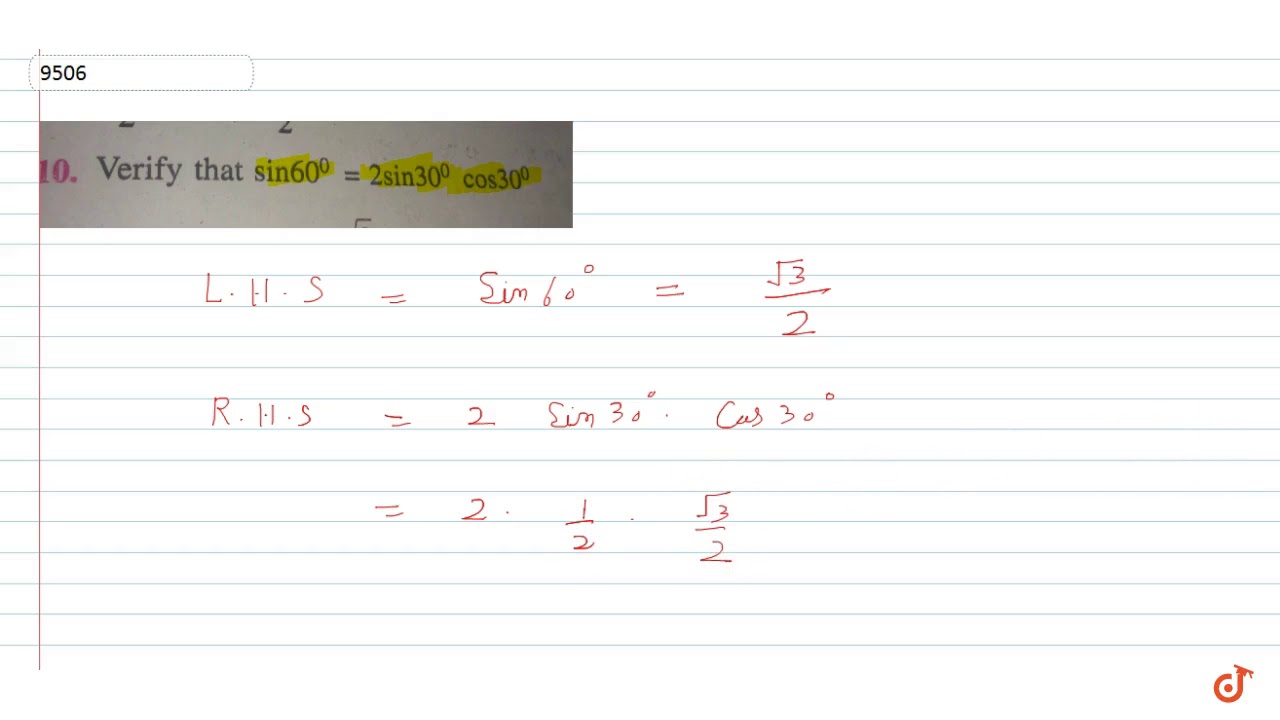 9506
10. Verify that sin60⁰ = 2sin30⁰ cos30⁰
L.H.S = Sin 60° = √3/2
R.H.S = 2 Sin 30° . Cos 30°
= 2 . 1/2 . √3/2